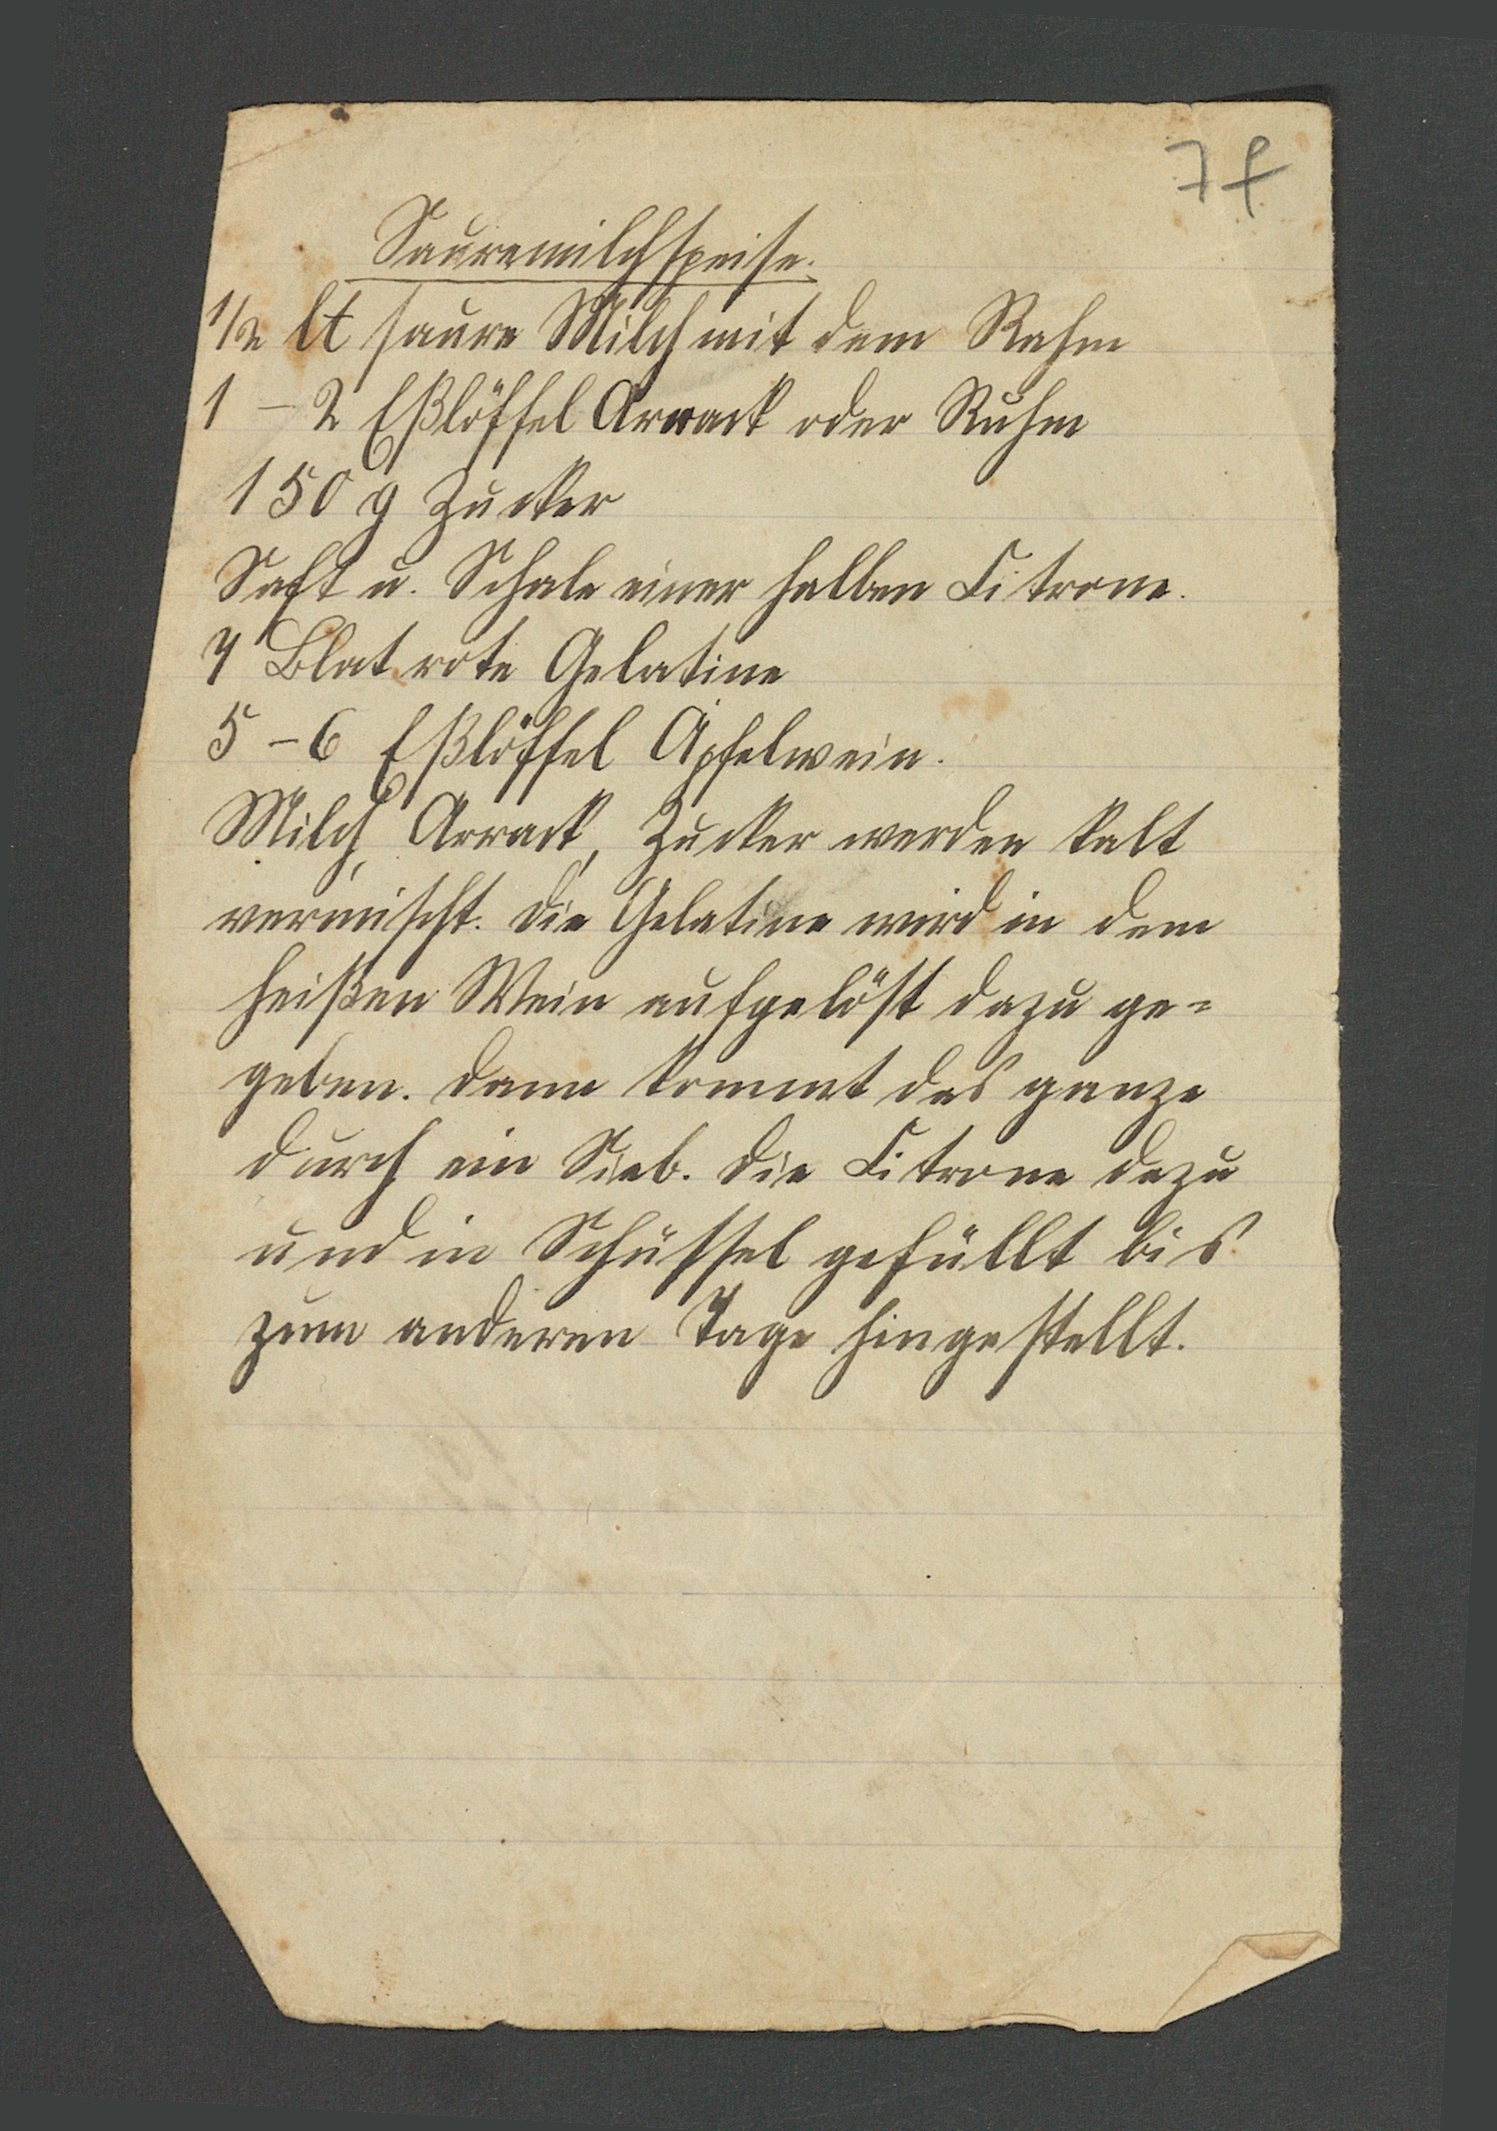 7f
Sauremilchspeise.
1/2 lt saure Milch mit dem Rahm
1 – 2 Eßlöffel Arrack oder Ruhm
150 g Zucker
Saft u. Schale einer halben Citrone.
7 Blat rote Gelatine
5 – 6 Eßlöffel Apfelwein.
Milch, Arrack, Zucker werden kalt
vermischt. Die Gelatine wird in dem
heißen Wein aufgelöst dazu ge=
geben. Dann kommt das ganze
durch ein Sieb. Die Citrone dazu
und in Schüssel gefüllt bis
zum anderen Tage hingestellt.